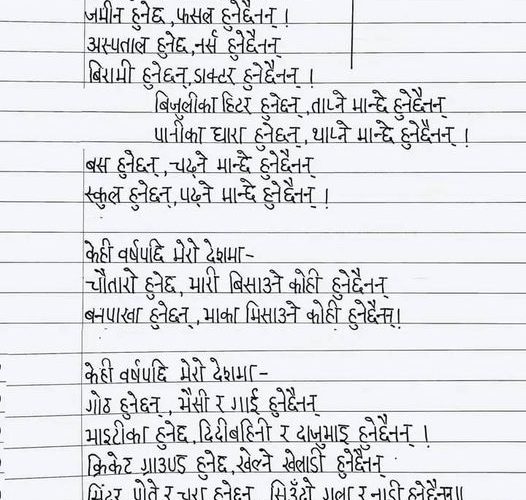 जमीन हुनेछ, फसल हुनेछैनन् !
अस्पताल हुनेछ, नर्स हुनेछैनन्
बिरामी हुनेछन्, डाक्टर हुनेछैनन् !
बिजुलीका हिटर हुनेछन्, ताप्ने मान्छे हुनेछैनन्
पानीका धारा हुनेछन्, थाप्ने मान्छे हुनेछैनन् !
बस हुनेछन्, चढ्ने मान्छे हुनेछैनन्
स्कुल हुनेछन्, पढ्ने मान्छे हुनेछैनन् !
केही वर्षपछि मेरो देशमा-
चौतारो हुनेछ, भारी बिसाउने कोही हुनेछैनन्
बनपाखा हुनेछन्, भाका मिसाउने कोही हुनेछैनन्!
केही वर्षपछि मेरो देशमा-
गोठ हुनेछन्, भैसी र गाई हुनेछैनन्
माइटीका हुनेछ, दिदीबहिनी र दाजुभाइ हुनेछैनन् !
क्रिकेट ग्राउण्ड हुनेछ, खेल्ने खेलाडी हुनेछैनन्
सिंदुर, पोते र चुरा हुनेछन्, सिउँदो, गला र नाडी हुनेछैनन्॥